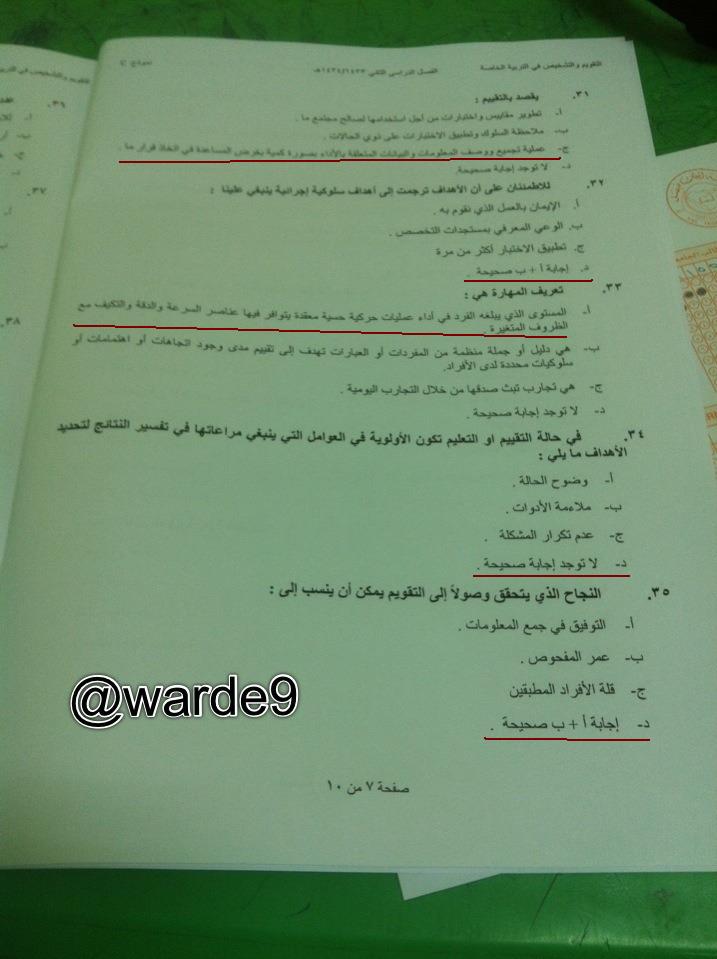 التقويم والتشخيص في التربية الخاصة
الفصل الدراسي الثاني ١٤٣٤/١٤٣٣هـ
نموذج C
٣١. يقصد بالتقييم :
أ- تطوير مقاييس واختبارات من أجل استخدامها لصالح مجتمع ما .
ب- ملاحظة السلوك وتطبيق الاختبارات على ذوي الحالات .
ج- عملية تجميع ووصف المعلومات والبيانات المتعلقة بالأداء بصورة كمية بغرض المساعدة في اتخاذ قرار ما .
د- لا توجد إجابة صحيحة.
٣٢. للاطمئنان على أن الأهداف ترجمت إلى أهداف سلوكية إجرائية ينبغي علينا :
أ. الإيمان بالعمل الذي نقوم به .
ب. الوعي المعرفي بمستجدات التخصص .
ج. تطبيق الاختبار أكثر من مرة
د. إجابة أ + ب صحيحة .
٣٣. تعريف المهارة هي :
أ- المستوى الذي يبلغه الفرد في أداء عمليات حركية حسية معقدة يتوافر فيها عناصر السرعة والدقة والتكيف مع
الظروف المتغيرة .
ب- هي دليل أو جملة منظمة من المفردات أو العبارات تهدف إلى تقييم مدى وجود اتجاهات أو اهتمامات أو
سلوكيات محددة لدى الأفراد.
ج- هي تجارب تبث صدقها من خلال التجارب اليومية .
د- لا توجد إجابة صحيحة .
٣٤. في حالة التقييم او التعليم تكون الأولوية في العوامل التي ينبغي مراعاتها في تفسير النتائج لتحديد
الأهداف ما يلي :
أ- وضوح الحالة .
ب- ملاءمة الأدوات .
ج- عدم تكرار المشكلة .
د- لا توجد إجابة صحيحة .
٣٥. النجاح الذي يتحقق وصولاً إلى التقويم يمكن أن ينسب إلى :
أ- التوفيق في جمع المعلومات .
ب- عمر المفحوص .
ج- قلة الأفراد المطبقين
د- إجابة أ + ب صحيحة .
@warde9
صفحة ٧ من ١٠
٣٦.
٣٧.
٣٨.